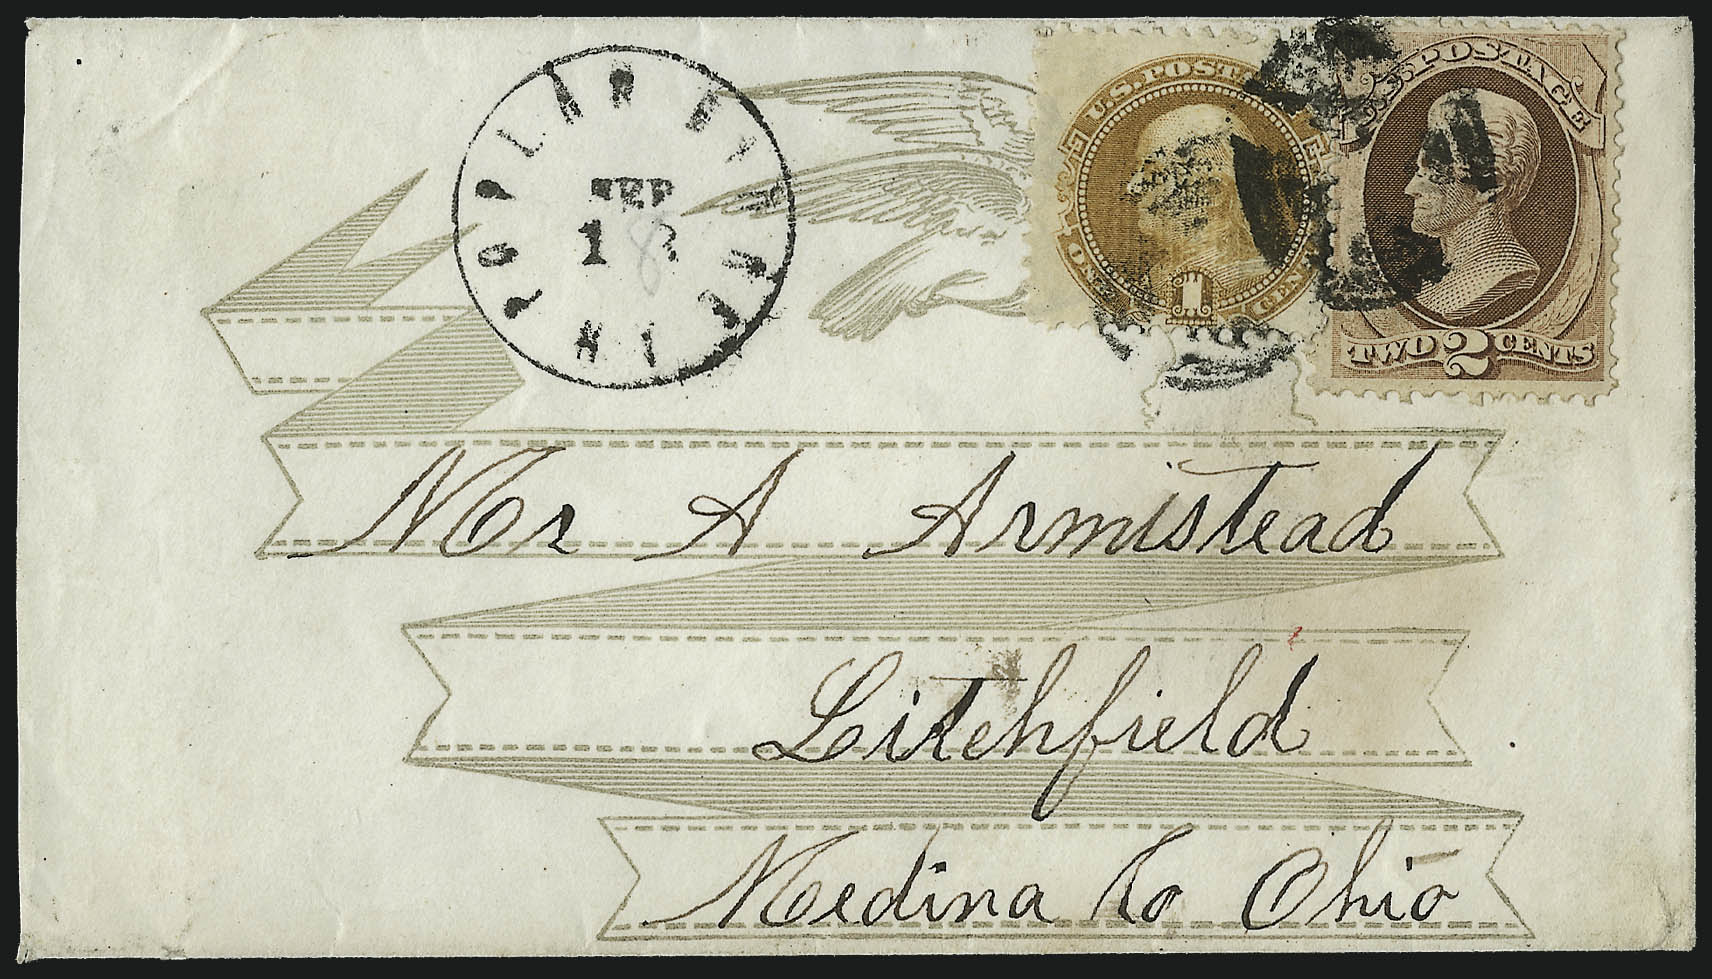 POPLAR
SEP
U.S. POSTAGE
ONE 1 CENT
POSTAGE
TWO 2 CENTS
Mr A Armistead
Litchfield
Medina Co Ohio